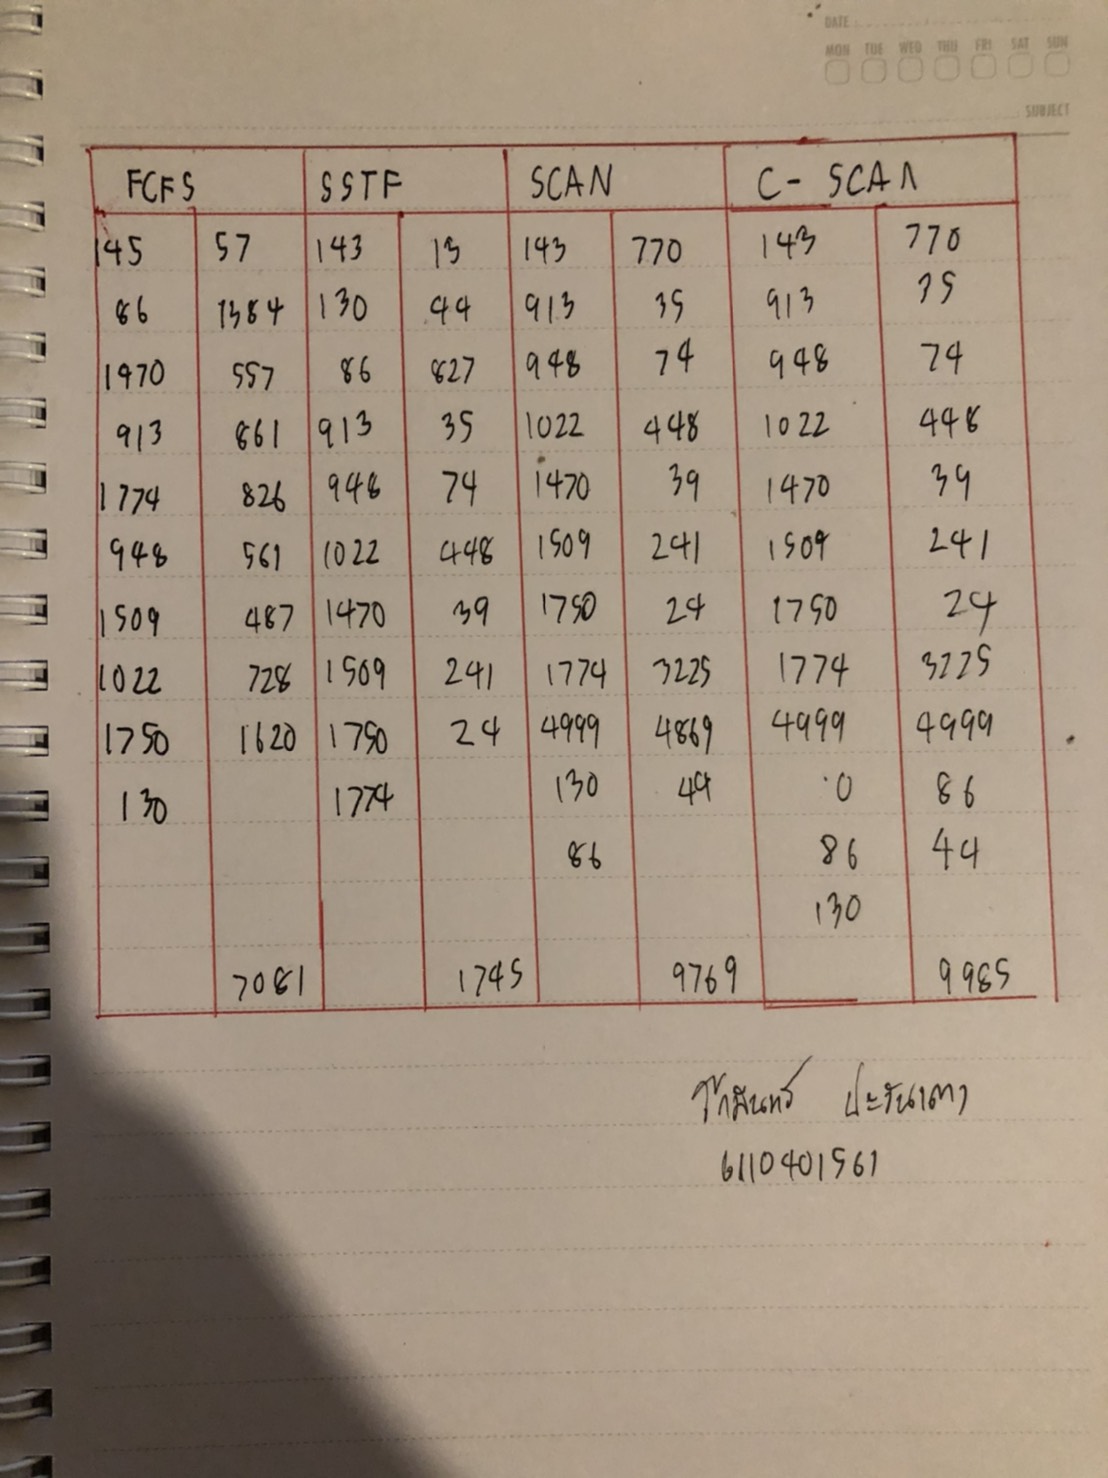 DATE
MON TUE WED THU FRI SAT SUN
SUBJECT
FCFS SSTF SCAN C- SCAN
145 57 143 13 143 770 143 770
86 1384 130 44 913 35 913 35
1470 557 86 827 948 74 948 74
913 861 913 35 1022 448 1022 448
1774 826 948 74 1470 39 1470 39
948 561 1022 448 1509 241 1509 241
1509 487 1470 39 1750 24 1750 24
1022 728 1509 241 1774 3225 1774 3225
1750 1620 1750 24 4999 4869 4999 4999
130 1774 130 44 0 86
86 86 44
130
7081 1745 9769 9985
6110401561